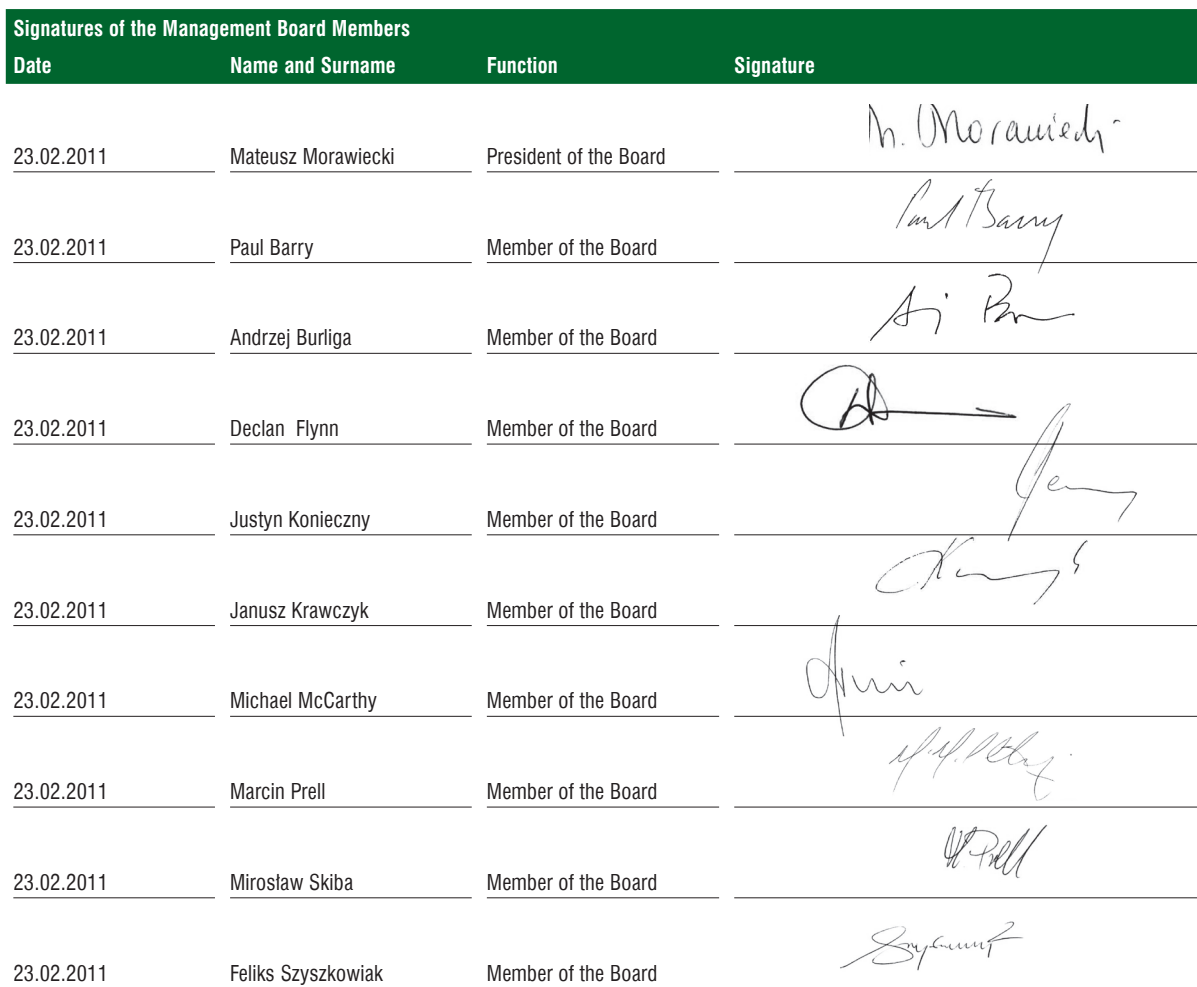 Signatures of the Management Board Members
Date Name and Surname Function Signature
M. Morawiecki
23.02.2011 Mateusz Morawiecki President of the Board
Paul Barry
23.02.2011 Paul Barry Member of the Board
23.02.2011 Andrzej Burliga Member of the Board
23.02.2011 Declan Flynn Member of the Board
23.02.2011 Justyn Konieczny Member of the Board
23.02.2011 Janusz Krawczyk Member of the Board
23.02.2011 Michael McCarthy Member of the Board
23.02.2011 Marcin Prell Member of the Board
M Prell
23.02.2011 Mirosław Skiba Member of the Board
23.02.2011 Feliks Szyszkowiak Member of the Board